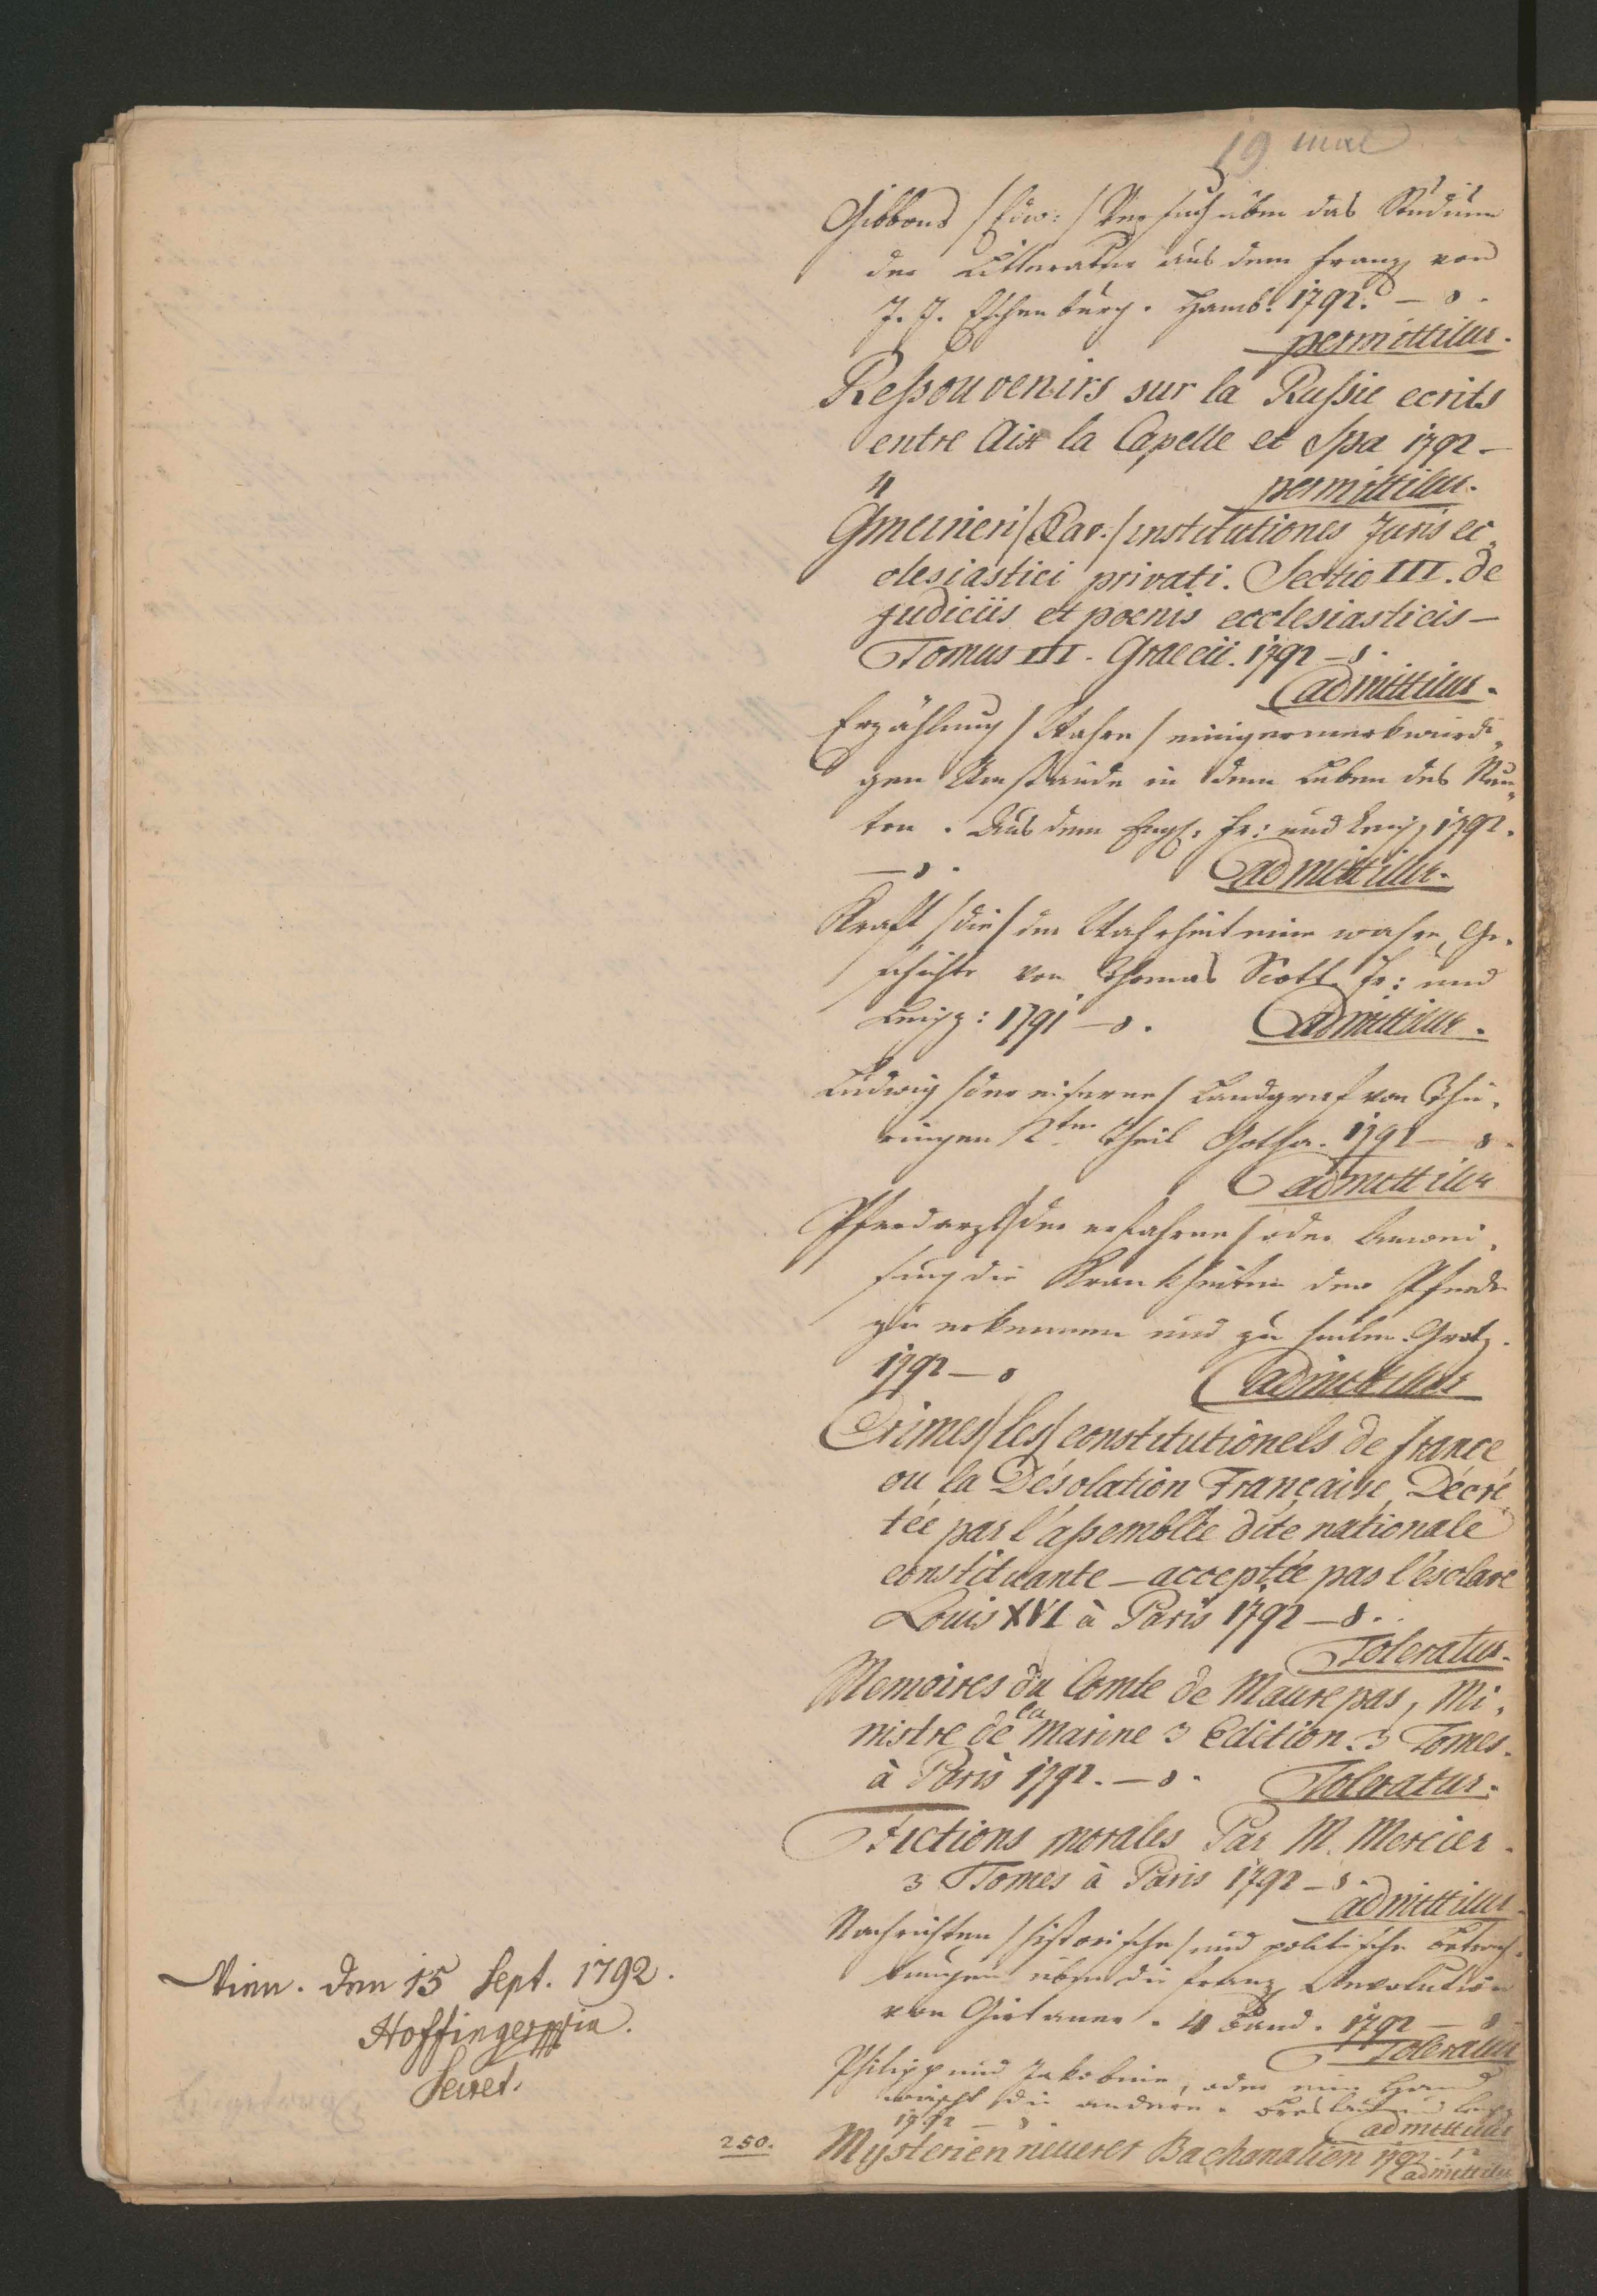 19 mae
Gibbons /Edw:/ Versuch über das Studium
der Litteratur aus dem franz von
J. J. Eschenburg. Hamb. 1792. – 8.
permittitur.
Reßouvenirs sur la Rußie ecrits
entre Aix la Capelle et Spa 1792 –
4 permittitur.
Gmeineri /Xav./ institutiones Juris ec„
clesiastici privati. Sectio III. de
judiciis et poenis ecclesiasticis –
Tomus III. Graecii. 1792 – 8.
admittitur.
Erzählung /Wahre/ einiger merkwürdi„
gen Umstände in dem Leben des New„
ton. Aus dem Engl: Fr: und Leipz 1792.
– 8. admittitur.
Kraft /die/ der Wahrheit eine wahre Ge„
schichte von Thomas Scott. Fr: und
Leipz: 1791 – 8. admittitur.
Ludwig /der eiserne/ Landgraf von Thü„
ringen 2ter Theil Gotha. 1792 – 8.
admittitur
Pferdarzt /der erfahrne/ oder Anwei„
sung die Krankheiten der Pferde
zu erkennen und zu heilen. Gratz.
1792 – 8 admittitur
Crimes /les/ constitutionels de france
ou la Désolation Française Décré„
tée par l'aßemblée dite nationale
constituante – acceptée par l'esclave
Louis XVI à Paris 1792 – 8.
Toleratur.
Memoires du Comte de Maurepas, Mi„
nistre de la Marine 3 Edition. 3 Tomes.
à Paris 1792. – 8. Toleratur.
Fictions morales Par M. Mercier.
3 Tomes à Paris 1792 – 8.
admittitur
Nachrichten /historische/ und politische Betrach„
tungen über die franz Revolution
von Girtaner. 4 Band. 1792 – 8
Toleratur
Philipp und Jakobine, oder eine Hand
wäscht die andere. Breslau und Leipz
1792 – 8. admittitur
250. Mysterien neuerer Bachanalien 1792. 12
admittitur
Wien. den 15 Sept. 1792.
Hoffinger mpria.
Secret.